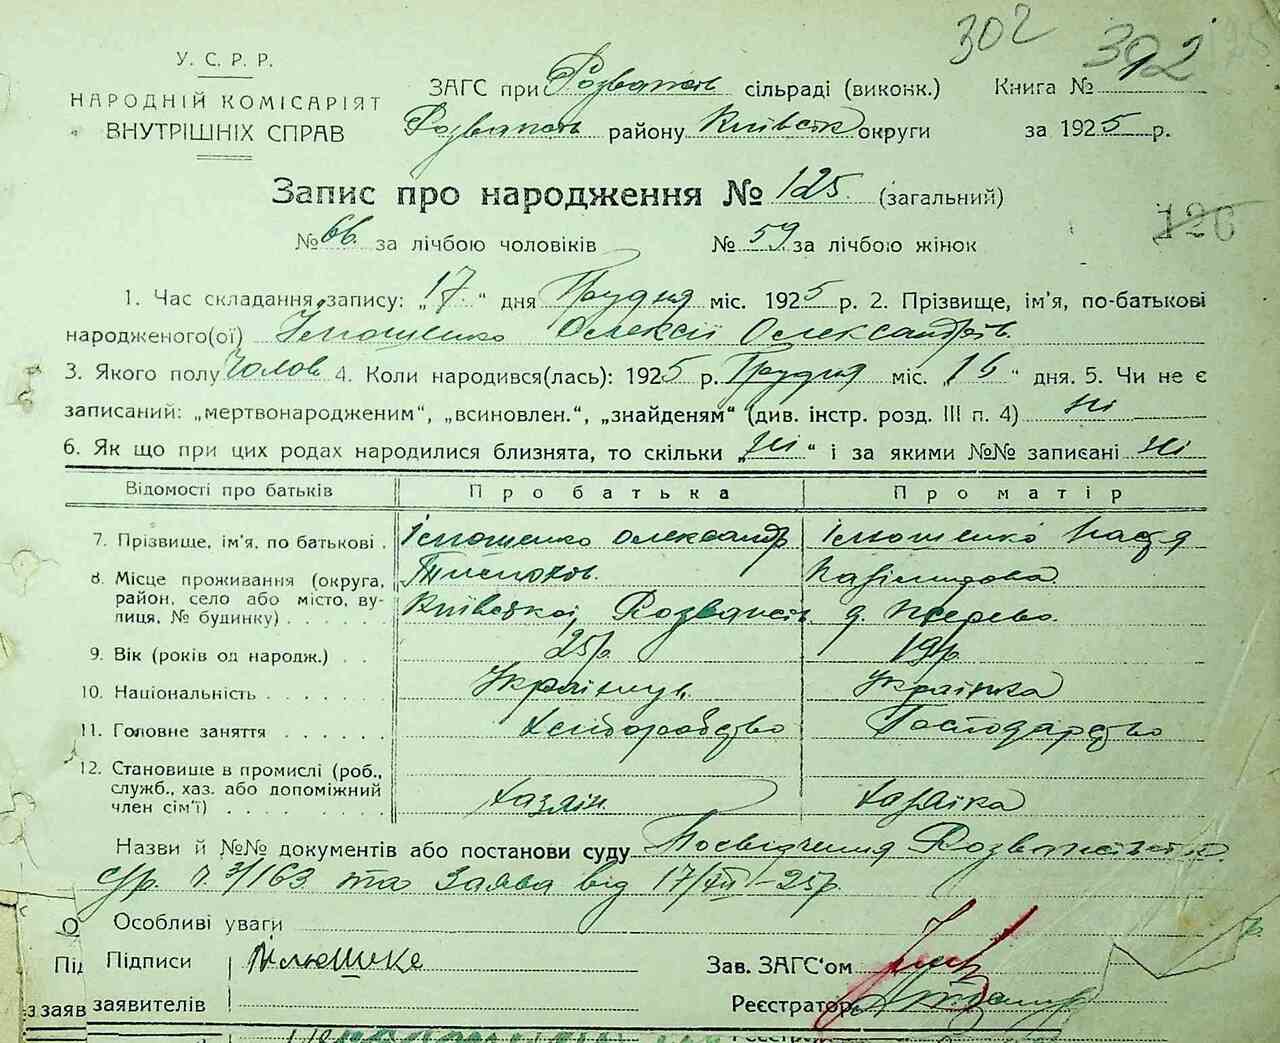 302
392
У. С. Р. Р.
НАРОДНІЙ КОМІСАРІЯТ
ВНУТРІШНІХ СПРАВ
ЗАГС при Розважів сільраді (виконк.) Книга №
Розважів району Київськ округи за 1925 р.
Запис про народження № 125. (загальний)
126
№ 66 за лічбою чоловіків № 59 за лічбою жінок
1. Час складання запису: „17“ дня Грудня міс. 1925 р. 2. Прізвище, ім'я, по-батькові
народженого(ої) Ілюшенко Олексій Олександрів.
3. Якого полу Чолов 4. Коли народився(лась): 1925 р. Грудня міс. „16“ дня. 5. Чи не є
записаний: „мертвонародженим“, „всиновлен.“, „знайденям“ (див. інстр. розд. III п. 4) ні
6. Як що при цих родах народилися близнята, то скільки „ні“ і за якими №№ записані ні
Відомості про батьків Про батька Про матір
7. Прізвище, ім'я, по батькові . Ілюшенко Олександр Ілюшенко Надя
8. Місце проживання (округа,
район, село або місто, ву-
лиця, № будинку) . . . . . Київської, Розважів. д. Жерево.
9. Вік (років од народж.) . . 25р. 19р.
10. Національність . . . . . . Українець. Українка
11. Головне заняття . . . . . . Хліборобство Господарство
12. Становище в промислі (роб.,
служб., хаз. або допоміжний
член сім'ї) . . . . . . . . Хазяїн. Хазяїка
Назви й №№ документів або постанови суду Посвідчення Розважівської
с/р. ч. 3/163 та заява від 17/XII-25р.
Особливі уваги
Підписи Ілюшенко Зав. ЗАГС'ом
заявителів Реєстратор